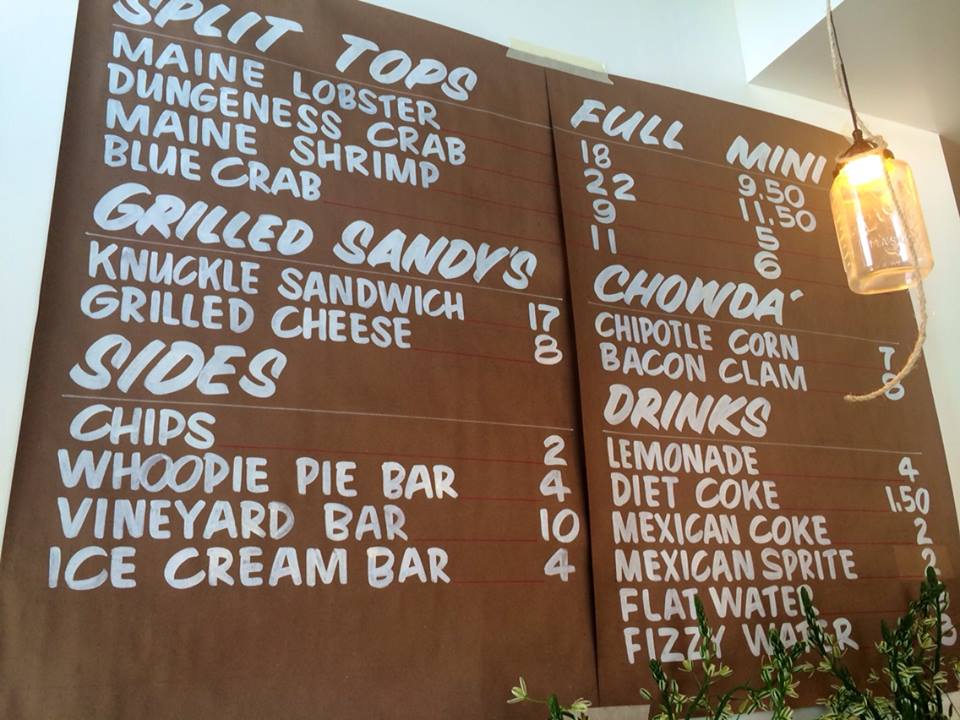 SPLIT TOPS
MAINE LOBSTER
DUNGENESS CRAB
MAINE SHRIMP
BLUE CRAB
GRILLED SANDY'S
KNUCKLE SANDWICH 17
GRILLED CHEESE 8
SIDES
CHIPS 2
WHOOPIE PIE BAR 4
VINEYARD BAR 10
ICE CREAM BAR 4
FULL MINI
18 9.50
22 11.50
9 5
11 6
CHOWDA'
CHIPOTLE CORN 7
BACON CLAM 8
DRINKS
LEMONADE 4
DIET COKE 1.50
MEXICAN COKE 2
MEXICAN SPRITE 2
FLAT WATER
FIZZY WATER
MASON